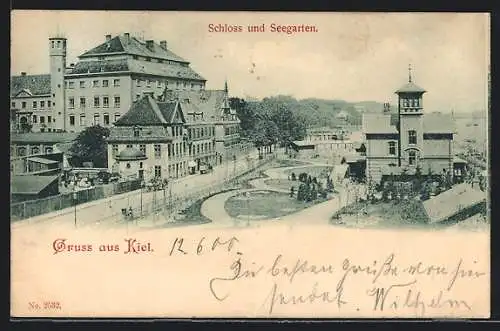 Schloss und Seegarten.
Gruss aus Kiel. 12 6 00
Die besten Grüße von hier
sendet Wilhelm
No. 2532.